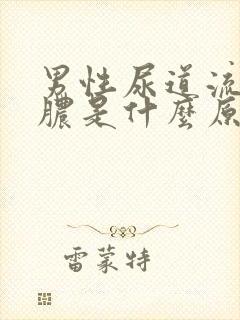 男性尿道流
膿是什麼原
雷蒙特